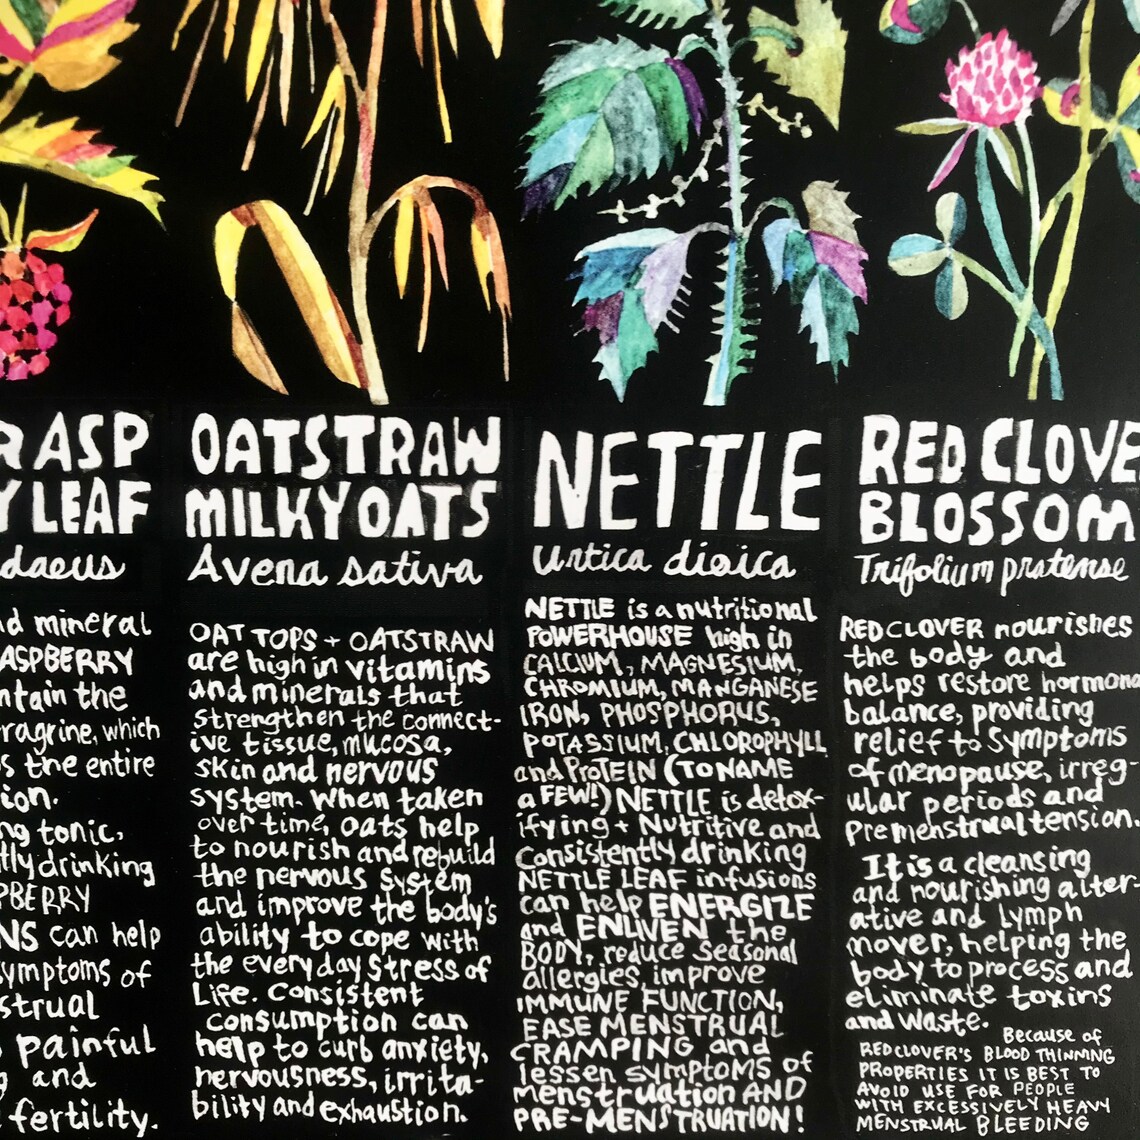 RASP
Y LEAF
daeus
d mineral
ASPBERRY
ntain the
ragrine, which
s the entire
ion.
ng tonic,
tly drinking
PBERRY
NS can help
symptoms of
strual
painful
g and
fertility.
OATSTRAW
MILKY OATS
Avena sativa
OAT TOPS + OATSTRAW
are high in vitamins
and minerals that
strengthen the connect-
ive tissue, mucosa,
skin and nervous
system. When taken
over time, oats help
to nourish and rebuild
the nervous system
and improve the body's
ability to cope with
the everyday stress of
Life. Consistent
consumption can
help to curb anxiety,
nervousness, irrita-
bility and exhaustion.
NETTLE
Urtica dioica
NETTLE is a nutritional
POWERHOUSE high in
CALCIUM, MAGNESIUM,
CHROMIUM, MANGANESE
IRON, PHOSPHORUS,
POTASSIUM, CHLOROPHYLL
and PROTEIN (TO NAME
a FEW!) NETTLE is detox-
ifying + Nutritive and
Consistently drinking
NETTLE LEAF infusions
can help ENERGIZE
and ENLIVEN the
BODY, reduce seasonal
allergies, improve
IMMUNE FUNCTION,
EASE MENSTRUAL
CRAMPING and
lessen symptoms of
menstruation AND
PRE-MENSTRUATION!
RED CLOVE
BLOSSOM
Trifolium pratense
RED CLOVER nourishes
the body and
helps restore hormona
balance, providing
relief to symptoms
of menopause, irreg-
ular periods and
premenstrual tension.
It is a cleansing
and nourishing alter-
ative and lymph
mover, helping the
body to process and
eliminate toxins
and waste.
Because of
RED CLOVER'S BLOOD THINNING
PROPERTIES IT IS BEST TO
AVOID USE FOR PEOPLE
WITH EXCESSIVELY HEAVY
MENSTRUAL BLEEDING